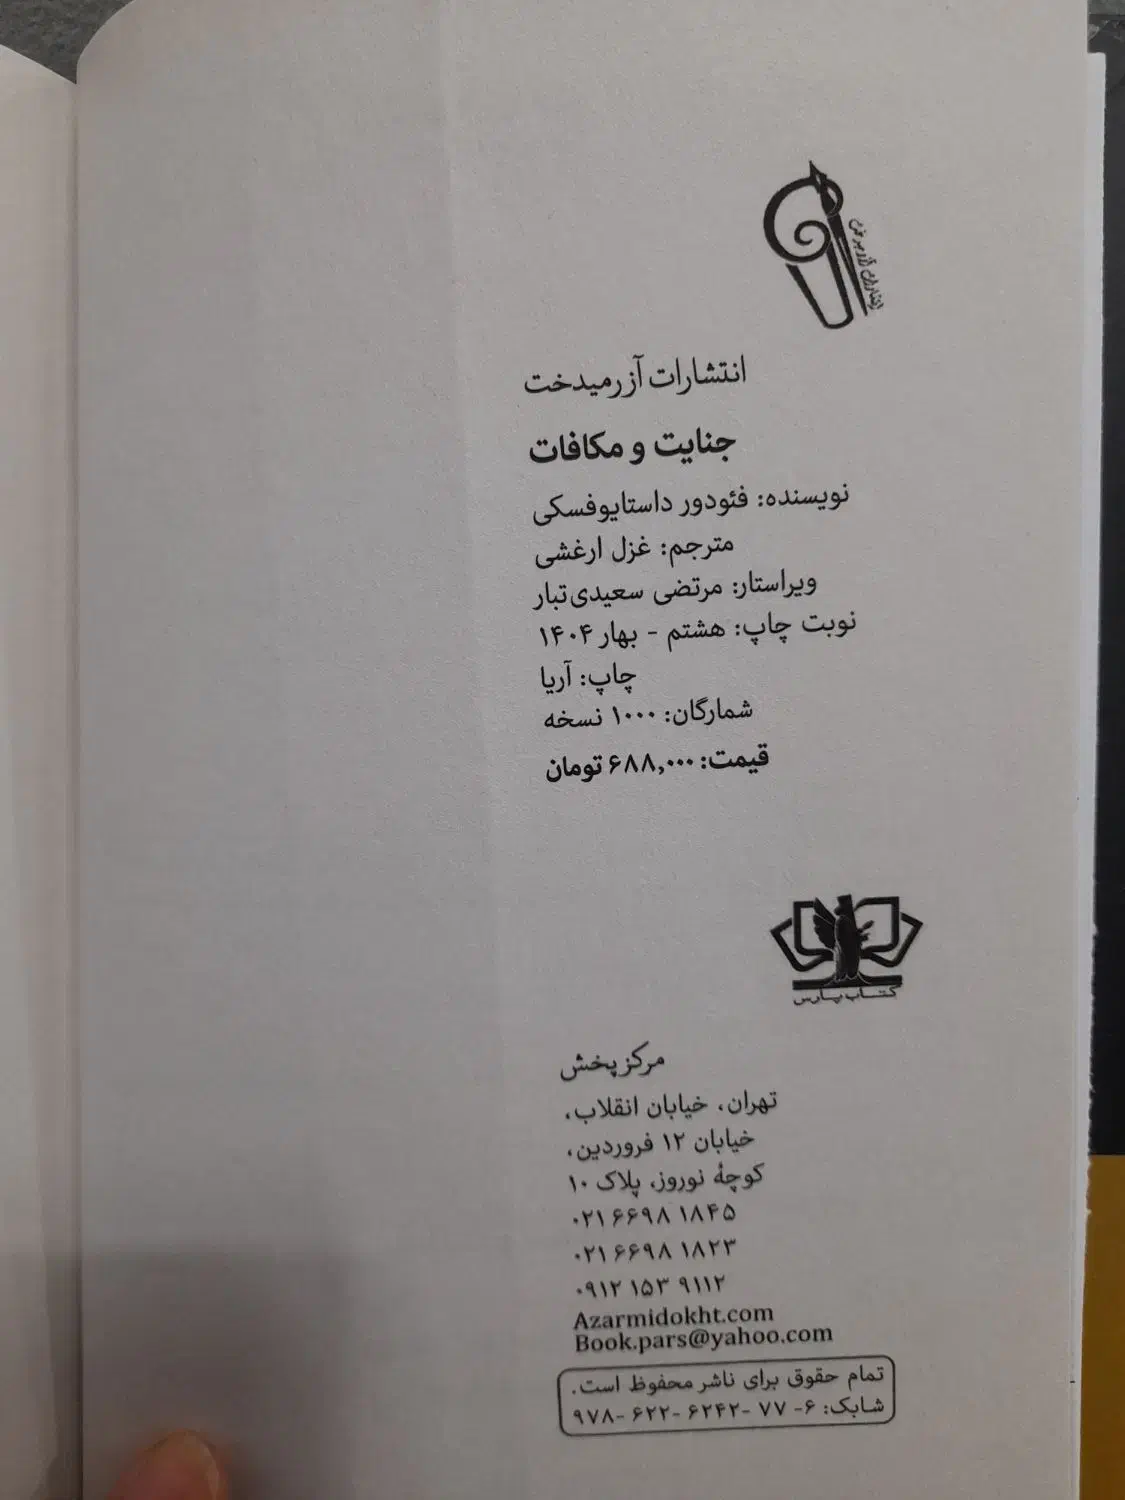 انتشارات آزرمیدخت
انتشارات آزرمیدخت
جنایت و مکافات
نویسنده: فئودور داستایوفسکی
مترجم: غزل ارغشی
ویراستار: مرتضی سعیدی‌تبار
نوبت چاپ: هشتم - بهار ۱۴۰۴
چاپ: آریا
شمارگان: ۱۰۰۰ نسخه
قیمت: ۶۸۸,۰۰۰ تومان
کتاب پارس
مرکز پخش
تهران، خیابان انقلاب،
خیابان ۱۲ فروردین،
کوچهٔ نوروز، پلاک ۱۰
۰۲۱ ۶۶۹۸ ۱۸۴۵
۰۲۱ ۶۶۹۸ ۱۸۲۳
۰۹۱۲ ۱۵۳ ۹۱۱۲
Azarmidokht.com
Book.pars@yahoo.com
تمام حقوق برای ناشر محفوظ است.
شابک: ۶- ۷۷ -۶۲۴۲ -۶۲۲ -۹۷۸